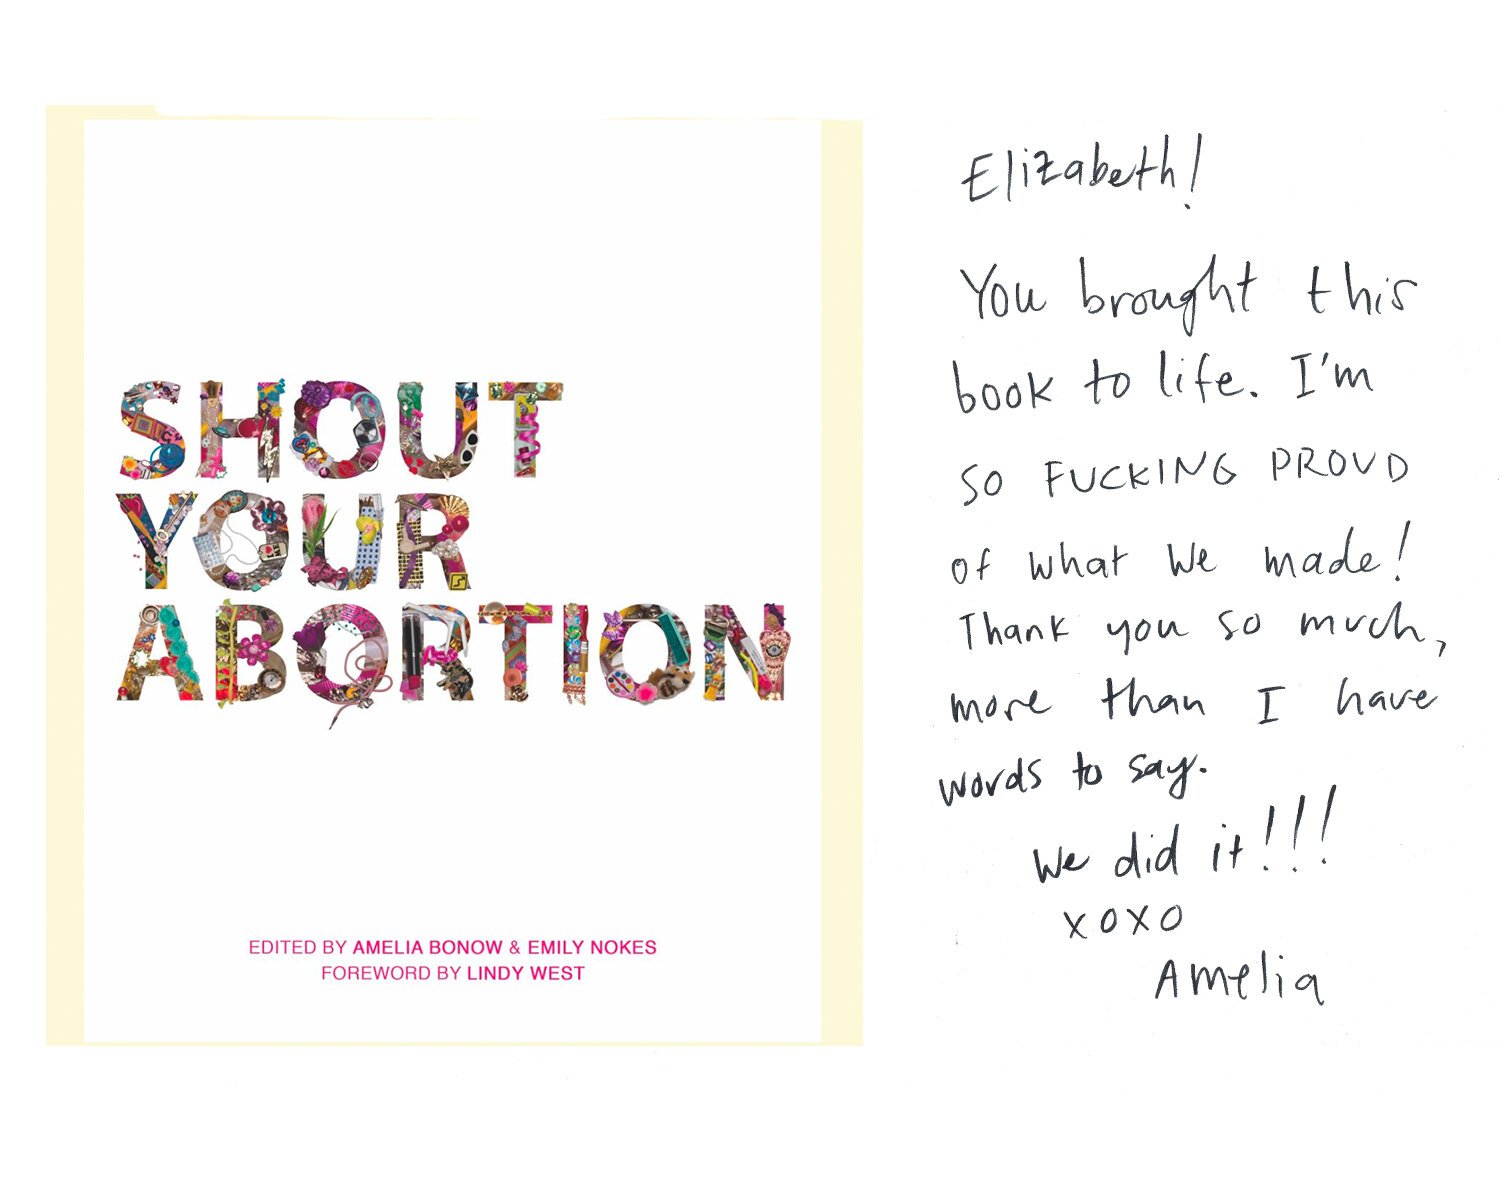 SHOUT
YOUR
ABORTION
EDITED BY AMELIA BONOW & EMILY NOKES
FOREWORD BY LINDY WEST
Elizabeth!
You brought this
book to life. I'm
SO FUCKING PROUD
of what we made!
Thank you so much,
more than I have
words to say.
We did it!!!
XOXO
Amelia